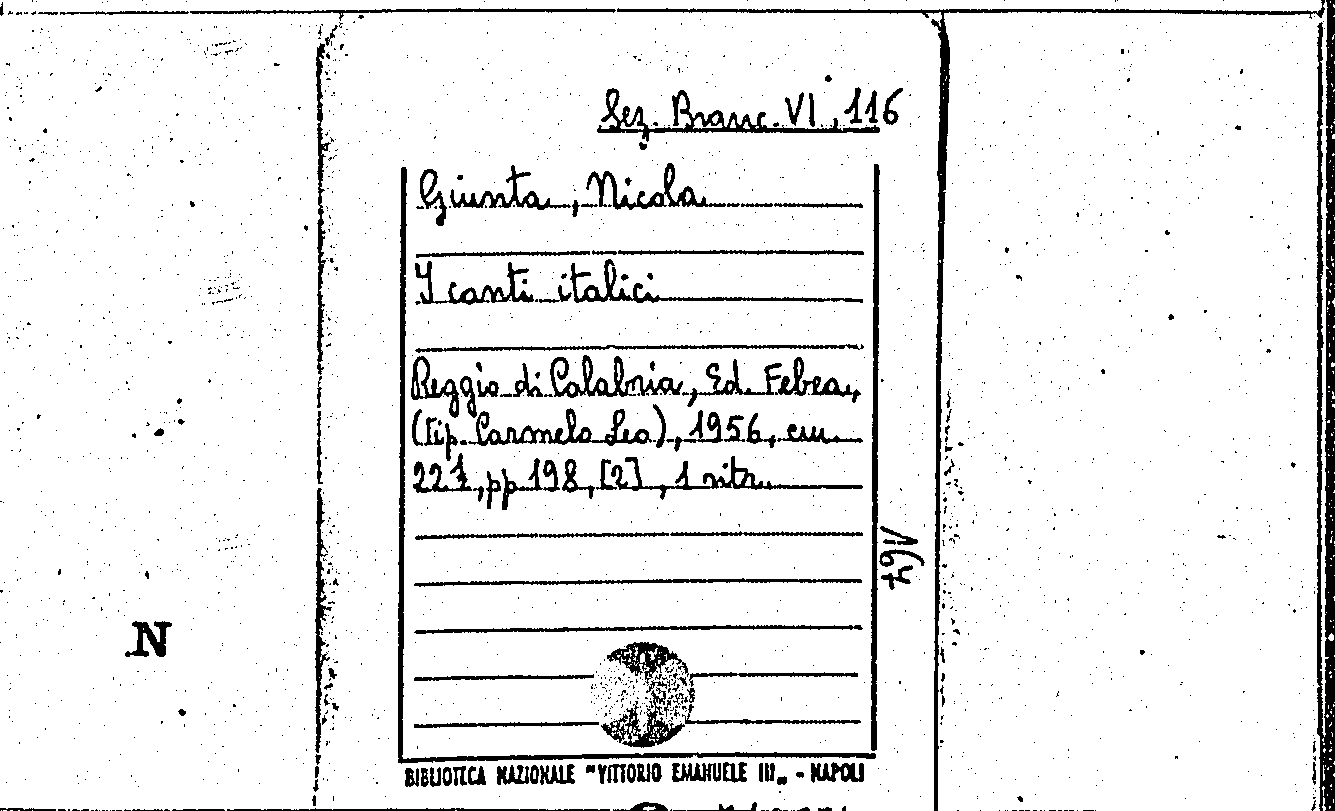 Sez. Branc. VI, 116
Giunta, Nicola
I canti italici
Reggio di Calabria, Ed. Febea,
(tip. Carmelo Leo), 1956, cm.
22½, pp 198, [2], 1 ritr.
N
BIBLIOTECA NAZIONALE "VITTORIO EMANUELE III„ - NAPOLI